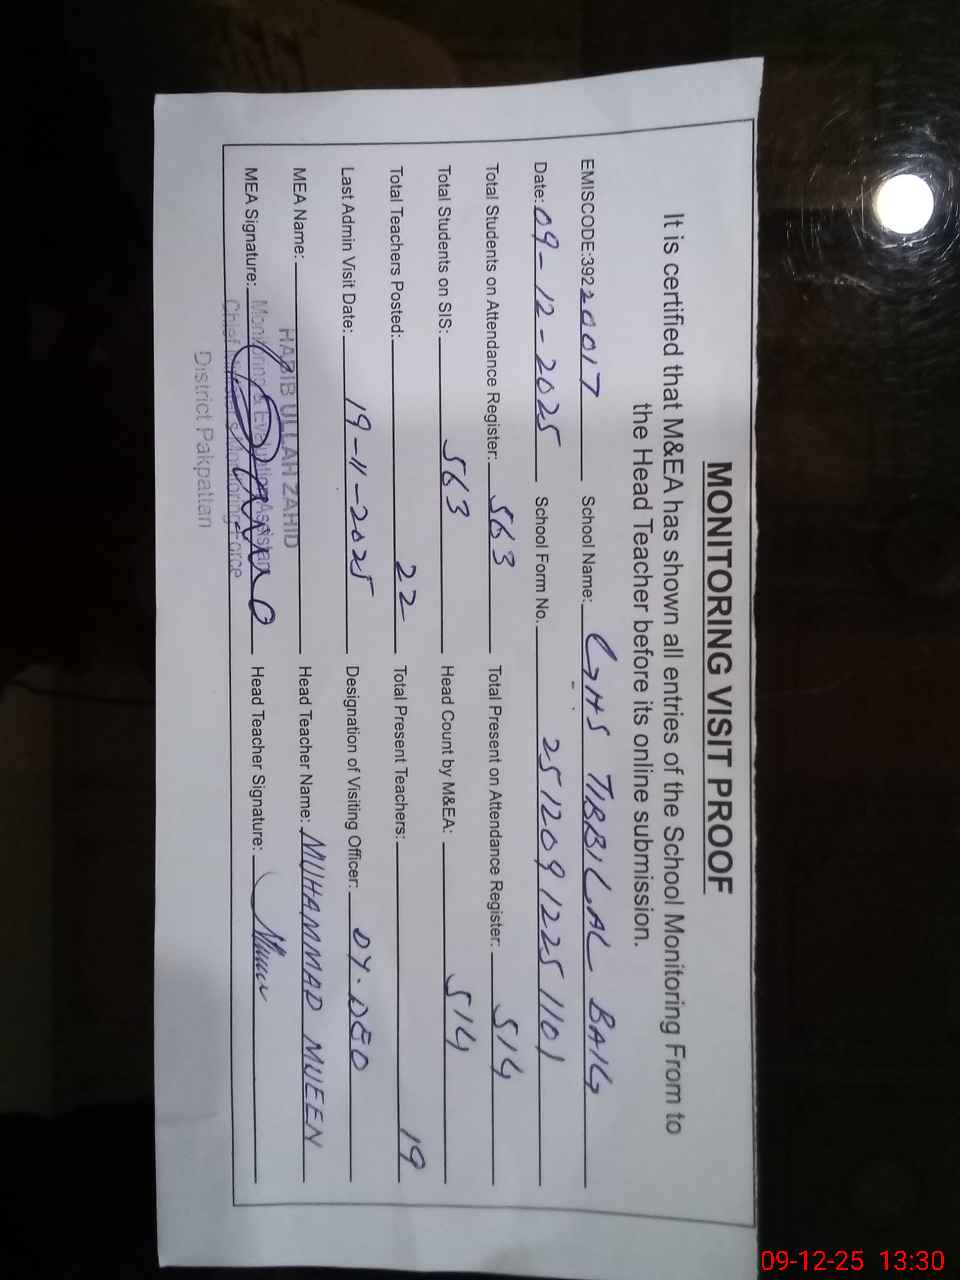 MONITORING VISIT PROOF
It is certified that M&EA has shown all entries of the School Monitoring From to
the Head Teacher before its online submission.
EMISCODE:39220017 School Name: GHS TIBBI LAL BAIG
Date: 09-12-2025 School Form No. 2512091225 1101
Total Students on Attendance Register: 563 Total Present on Attendance Register: 514
Total Students on SIS: 563 Head Count by M&EA: 514
Total Teachers Posted: 22 Total Present Teachers: 19
Last Admin Visit Date: 19-11-2025 Designation of Visiting Officer: DY. DEO
MEA Name: HABIB ULLAH ZAHID Head Teacher Name: MUHAMMAD MUEEN
MEA Signature: Head Teacher Signature:
Monitoring & Evaluation Assistant
Chief Minister's Monitoring Force
District Pakpattan
09-12-25 13:30